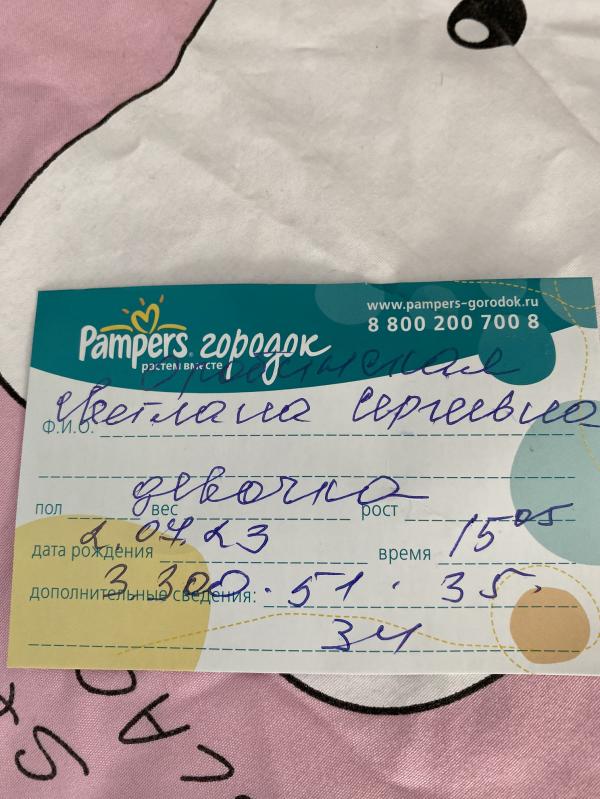 www.pampers-gorodok.ru
8 800 200 700 8
Pampers городок
растем вместе
Светлана Сергеевна
Ф.И.О.
девочка
пол вес рост
дата рождения 2.07.23 время 15 05
дополнительные сведения: 3300. 51. 35.
34